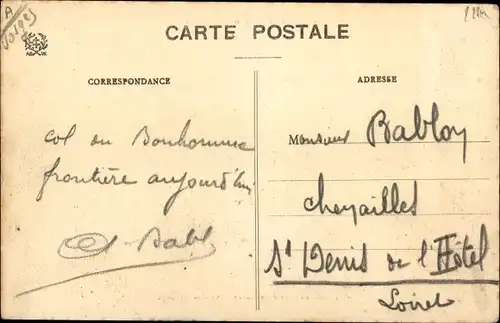 A
Vosges
CARTE POSTALE
CORRESPONDANCE
col du Bonhomme
frontière aujourd'hui
ADRESSE
Monsieur Babloy
St Denis de l'Hôtel
Loiret